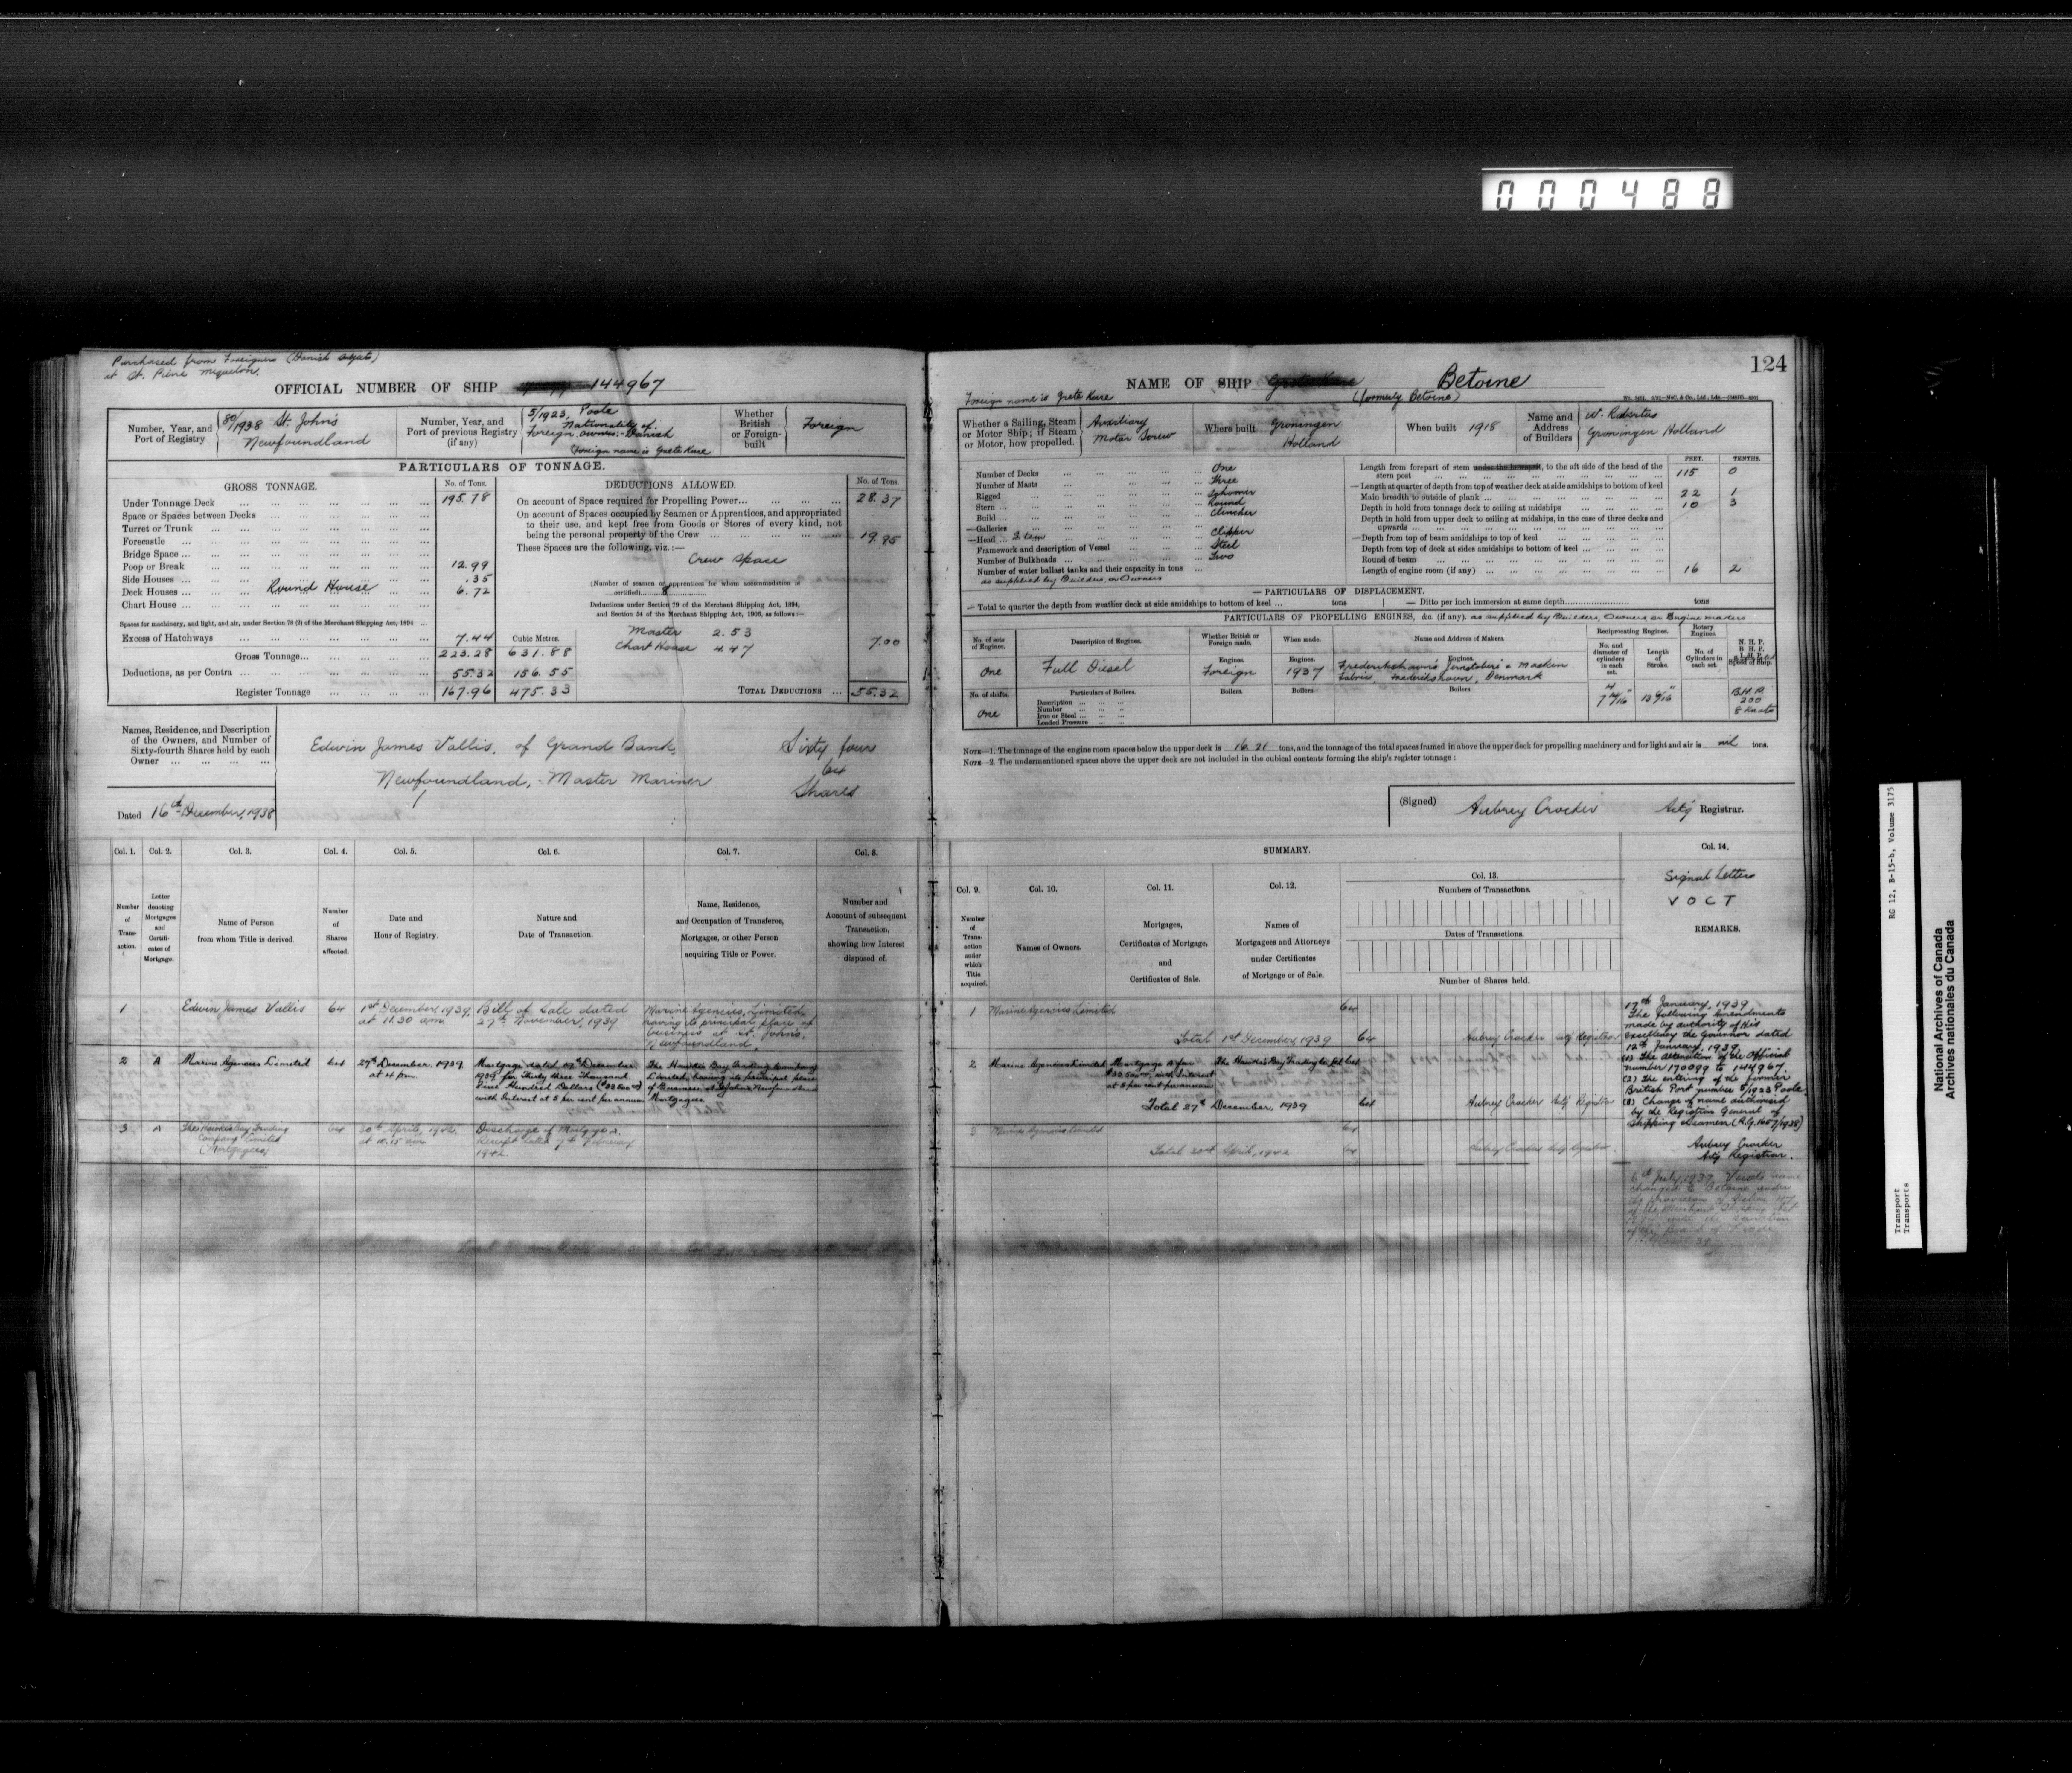 000488
Purchased from Foreigners (Danish subjects)
at St. Pierre Miquelon.
OFFICIAL NUMBER OF SHIP 144967
Number, Year, and Port of Registry
80/1938 St. John's
Newfoundland
Number, Year, and Port of previous Registry (if any)
5/1923, Poole
Nationality of
Foreign owner:- Danish
Foreign name is Grete Kure
Whether British or Foreign-built
Foreign
PARTICULARS OF TONNAGE.
GROSS TONNAGE.
No. of Tons.
Under Tonnage Deck 195.78
Space or Spaces between Decks
Turret or Trunk
Forecastle
Bridge Space
Poop or Break 12.99
Side Houses .35
Deck Houses Round House 6.72
Chart House
Spaces for machinery, and light, and air, under Section 78 (2) of the Merchant Shipping Act, 1894
Excess of Hatchways 7.44
Cubic Metres.
Gross Tonnage 223.28 631.88
Deductions, as per Contra 55.32 156.55
Register Tonnage 167.96 475.33
DEDUCTIONS ALLOWED.
No. of Tons.
On account of Space required for Propelling Power 28.37
On account of Spaces occupied by Seamen or Apprentices, and appropriated
to their use, and kept free from Goods or Stores of every kind, not
being the personal property of the Crew 19.95
These Spaces are the following, viz.:—
Crew Space
(Number of seamen or apprentices for whom accommodation is
certified) 8
Deductions under Section 79 of the Merchant Shipping Act, 1894,
and Section 54 of the Merchant Shipping Act, 1906, as follows:—
Master 2.53
Chart House 4.47
7.00
TOTAL DEDUCTIONS 55.32
Names, Residence, and Description
of the Owners, and Number of
Sixty-fourth Shares held by each
Owner
Edwin James Vallis, of Grand Bank,
Newfoundland, Master Mariner
Sixty four
64
Shares
Dated 16th December, 1938
Col. 1. Col. 2. Col. 3. Col. 4. Col. 5. Col. 6. Col. 7. Col. 8.
Number of Transaction.
Letter denoting Mortgages and Certificates of Mortgage.
Name of Person from whom Title is derived.
Number of Shares affected.
Date and Hour of Registry.
Nature and Date of Transaction.
Name, Residence, and Occupation of Transferee, Mortgagee, or other Person acquiring Title or Power.
Number and Account of subsequent Transaction, showing how Interest disposed of.
1 Edwin James Vallis 64
1st December, 1939,
at 11.30 am.
Bill of Sale dated
27th November, 1939
Marine Agencies, Limited,
having its principal place of
business at St. John's,
Newfoundland.
2 A Marine Agencies Limited 64
27th December, 1939
at 4 pm.
Mortgage dated 19th December
1939 for Thirty three Thousand
Five Hundred Dollars ($33500.00)
with Interest at 5 per cent per annum
The Hawke's Bay Trading Company
Limited, having its principal place
of Business at St. John's Newfoundland
Mortgagees
3 A The Hawkes Bay Trading
Company Limited
(Mortgagees)
64
20th April, 1942
at 10.15 am
Discharge of Mortgage A
Receipt dated 7th February
1942
124
NAME OF SHIP Betoine
(formerly Betoine)
Foreign name is Grete Kure
Whether a Sailing, Steam
or Motor Ship; if Steam
or Motor, how propelled.
Auxiliary
Motor Screw
Where built
Groningen
Holland
When built 1918
Name and Address of Builders
Groningen Holland
Number of Decks One
Number of Masts Three
Rigged Schooner
Stern Round
Build Clincher
Galleries
Head Stem Clipper
Framework and description of Vessel Steel
Number of Bulkheads Two
Number of water ballast tanks and their capacity in tons
as supplied by Builders or Owners
FEET. TENTHS.
Length from forepart of stem under the bowsprit, to the aft side of the head of the
stern post 115 0
Length at quarter of depth from top of weather deck at side amidships to bottom of keel
Main breadth to outside of plank 22 1
Depth in hold from tonnage deck to ceiling at midships 10 3
Depth in hold from upper deck to ceiling at midships, in the case of three decks and
upwards
Depth from top of beam amidships to top of keel
Depth from top of deck at sides amidships to bottom of keel
Round of beam
Length of engine room (if any) 16 2
PARTICULARS OF DISPLACEMENT.
Total to quarter the depth from weather deck at side amidships to bottom of keel tons
Ditto per inch immersion at same depth tons
PARTICULARS OF PROPELLING ENGINES, &c. (if any). as supplied by Builders, Owners or Engine makers
No. of sets of Engines.
Description of Engines.
Whether British or Foreign made.
When made.
Name and Address of Makers.
Reciprocating Engines.
Rotary Engines.
No. and diameter of cylinders in each set.
Length of Stroke.
No. of Cylinders in each set.
N. H. P.
B. H. P.
I. H. P.
Speed of Ship.
One Full Diesel
Engines. Foreign
Engines. 1937
Engines.
Frederikshavn's Jernstoberi & Maskin
Fabric, Frederikshavn, Denmark
No. of shafts.
One
Particulars of Boilers.
Description
Number
Iron or Steel
Loaded Pressure
Boilers. Boilers. Boilers.
B.H.P.
200
8 Knots
NOTE—1. The tonnage of the engine room spaces below the upper deck is 16.21 tons, and the tonnage of the total spaces framed in above the upper deck for propelling machinery and for light and air is nil tons.
NOTE—2. The undermentioned spaces above the upper deck are not included in the cubical contents forming the ship's register tonnage:
(Signed) Aubrey Crocker Actg Registrar.
SUMMARY.
Col. 9. Col. 10. Col. 11. Col. 12. Col. 13. Col. 14.
Number of Transaction under which Title acquired.
Names of Owners.
Mortgages, Certificates of Mortgage, and Certificates of Sale.
Names of Mortgagees and Attorneys under Certificates of Mortgage or of Sale.
Numbers of Transactions.
Dates of Transactions.
Number of Shares held.
Signal Letters
V O C T
REMARKS.
1 Marine Agencies Limited 64
Total 1st December, 1939 64 Aubrey Crocker Actg Registrar
2 Marine Agencies Limited
Mortgage A for
$33500.00, with Interest
at 5 per cent per annum
The Hawke's Bay Trading Co Ltd 64
Total 27th December, 1939 64 Aubrey Crocker Actg Registrar
3 Marine Agencies Limited 64
Total 20th April, 1942 64 Aubrey Crocker Actg Registrar.
17th January, 1939
The following amendments
made by authority of His
Excellency the Governor dated
12th January, 1939.
(1) The alteration of the Official
number 170099 to 144967.
(2) The entering of the former
British Port number 5/1923 Poole.
(3) Change of name authorised
by the Registrar General of
Shipping & Seamen (R.G. 1657/1938)
Aubrey Crocker
Actg Registrar.
6th July, 1939, Vessels name
changed to Betoine under
the provisions of Section 47
of the Merchant Shipping Act
under the sanction
of the Board of Trade
RG 12, B-15-b, Volume 3175
Transport
Transports
National Archives of Canada
Archives nationales du Canada